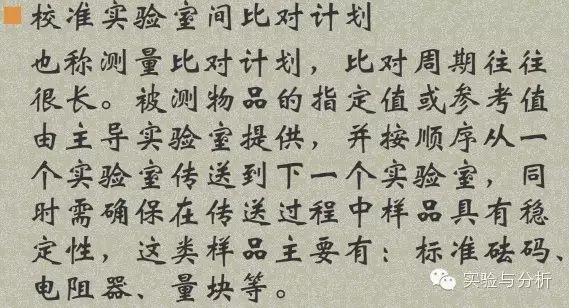 校准实验室间比对计划
也称测量比对计划，比对周期往往
很长。被测物品的指定值或参考值
由主导实验室提供，并按顺序从一
个实验室传送到下一个实验室，同
时需确保在传送过程中样品具有稳
定性，这类样品主要有：标准砝码、
电阻器、量块等。
实验与分析